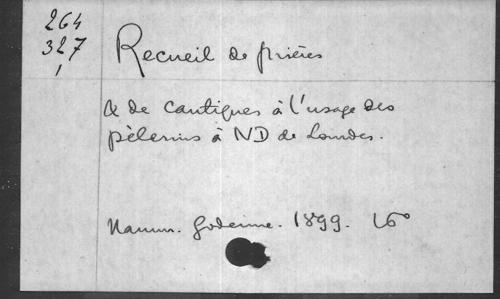 264
327
1
Recueil de prières
& de cantiques à l'usage des
pèlerins à ND de Lourdes.
Namur. Godenne. 1899. 16°